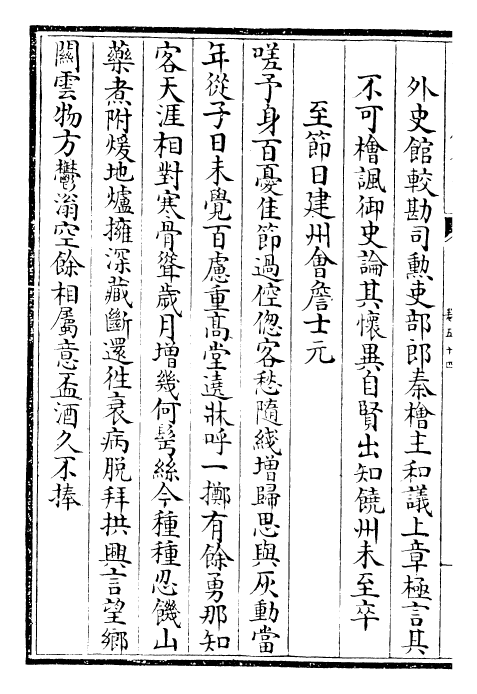 外史館較勘司勲吏部郎秦檜主和議上章極言其
不可檜諷御史論其懷異自賢出知饒州未至卒
至節日建州會詹士元
嗟予身百憂佳節過倥偬客愁隨綫增歸思與灰動當
年從子日未覺百慮重髙堂遶牀呼一擲有餘勇那知
客天涯相對寒骨聳歳月增幾何髩絲今種種忍饑山
藥煮附煖地爐擁深藏斷還徃衰病脱拜拱興言望鄉
關雲物方鬱滃空餘相屬意盃酒久不捧